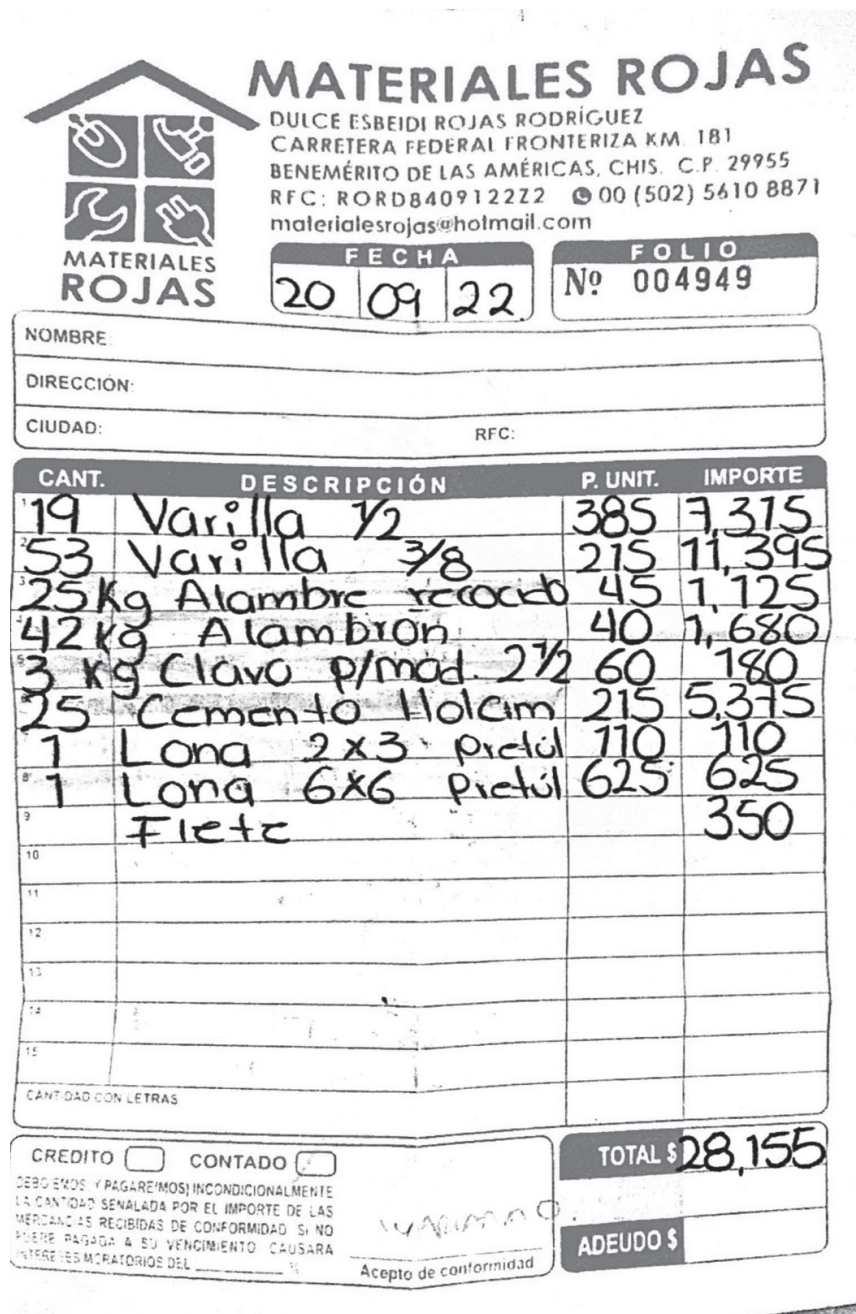 MATERIALES ROJAS
DULCE ESBEIDI ROJAS RODRÍGUEZ
CARRETERA FEDERAL FRONTERIZA KM. 181
BENEMÉRITO DE LAS AMÉRICAS, CHIS. C.P. 29955
RFC: RORD8409122Z2 00 (502) 5610 8871
materialesrojas@hotmail.com
MATERIALES
ROJAS
FECHA
20 09 22
FOLIO
Nº 004949
NOMBRE:
DIRECCIÓN:
CIUDAD: RFC:
CANT. DESCRIPCIÓN P. UNIT. IMPORTE
1 19 Varilla 1/2 385 7,315
2 53 Varilla 3/8 215 11,395
3 25 Kg Alambre recocido 45 1,125
4 42 Kg Alambron 40 1,680
5 3 Kg Clavo p/mad. 2 1/2 60 180
25 Cemento Holcim 215 5,375
1 Lona 2x3 Pretúl 110 110
8 1 Lona 6x6 Pretúl 625 625
9 Flete 350
10
11
12
13
14
15
CANTIDAD CON LETRAS
CREDITO CONTADO
DEBO(EMOS) Y PAGARE(MOS) INCONDICIONALMENTE
LA CANTIDAD SEÑALADA POR EL IMPORTE DE LAS
MERCANCIAS RECIBIDAS DE CONFORMIDAD SI NO
FUERE PAGADA A SU VENCIMIENTO CAUSARA
INTERESES MORATORIOS DEL ________ %
Acepto de conformidad
TOTAL $ 28,155
ADEUDO $